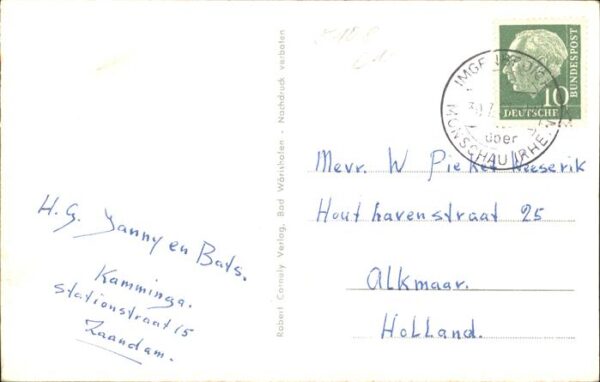 H.G. Janny en Bats.
Kamminga.
Stationstraat 15
Zaandam.
Robert Cornely Verlag, Bad Wörishofen - Nachdruck verboten
10
DEUTSCHE
BUNDESPOST
über
MONSCHAU (RHE
Mevr. W
Hout havenstraat 25
Alkmaar.
Holland.